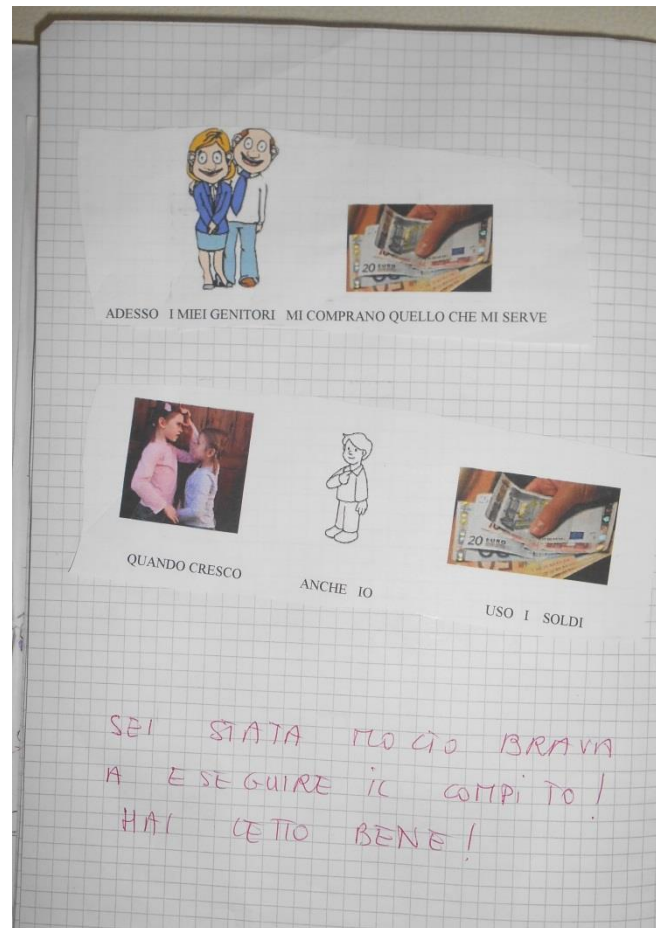 20 EURO
ADESSO I MIEI GENITORI MI COMPRANO QUELLO CHE MI SERVE
20 EURO
QUANDO CRESCO
ANCHE IO
USO I SOLDI
SEI STATA MOLTO BRAVA
A ESEGUIRE IL COMPITO!
HAI LETTO BENE!